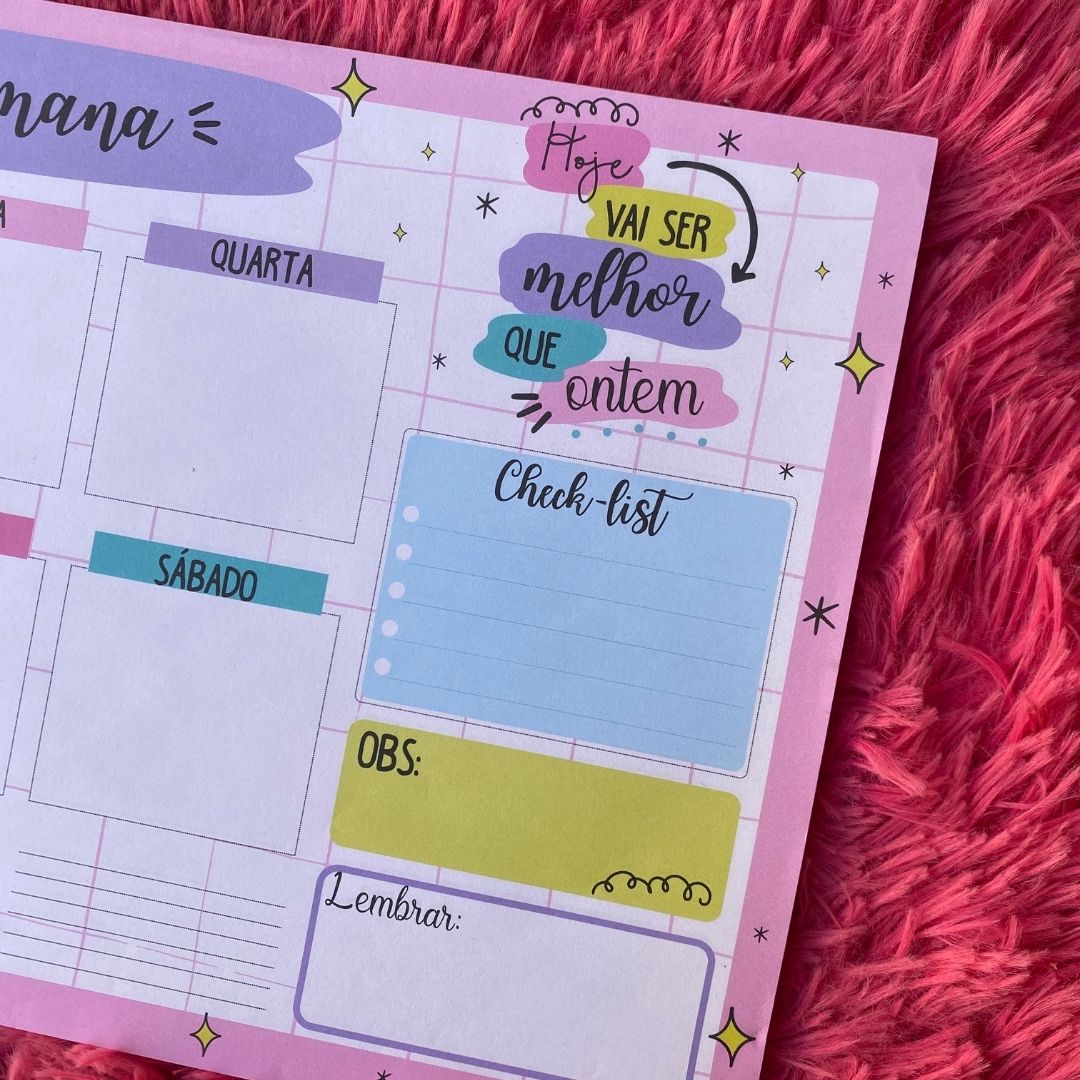 mana
Hoje
VAI SER
melhor
QUE
ontem
A
QUARTA
SÁBADO
Check-list
OBS:
Lembrar: